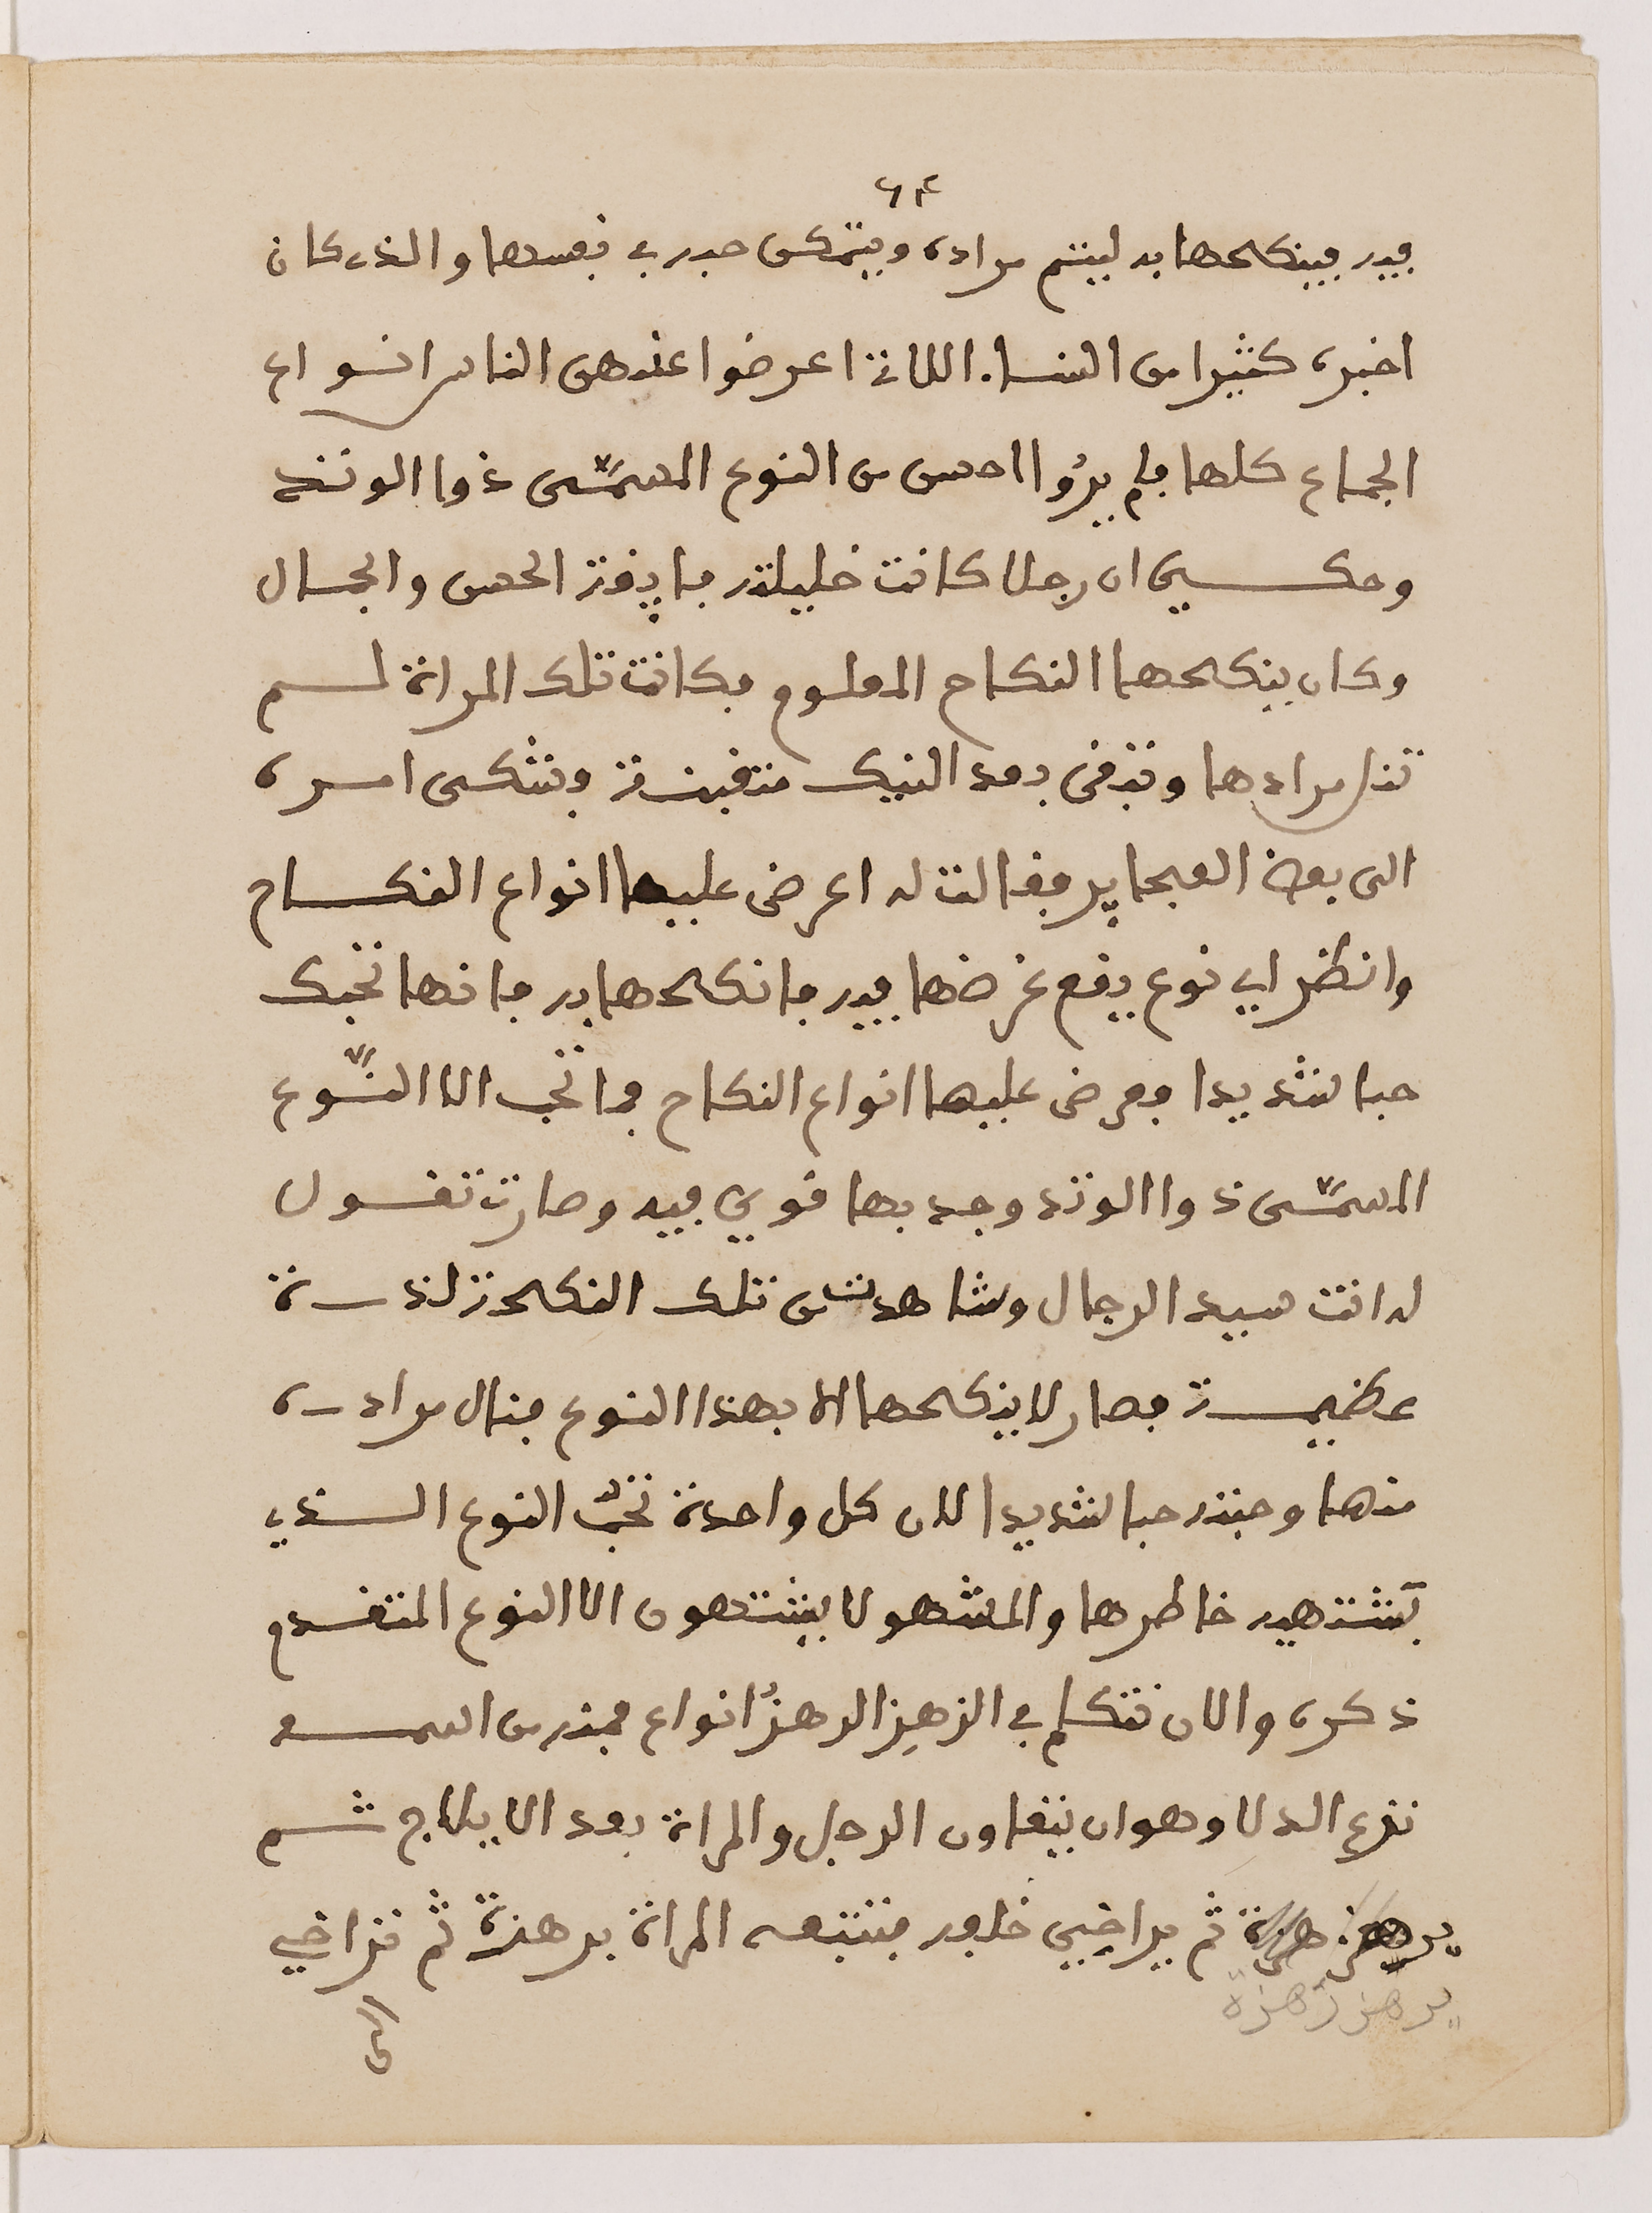 ٦٣
فيه فينكحها به ليتم مراده ويتمكن حبه في نفسها والذي كان
اخبره كثيرا من النساء اللاتي اعرضوا عندهن الناس انواع
الجماع كلها فلم يرُوا احسن من النوع المسمَّى ذوا الوتد
وحكي ان رجلا كانت خليلته فايقة الحسن والجمال
وكان ينكحها النكاح المعلوم فكانت تلك المراة لم
تنل مرادها وتبقى بعد النيك منقبضة وتشكى امره
الى بعض العجايز فقالت له اعرض عليها انواع النكاح
وانظر اي نوع يقع غرضها فيه فانكحها به فانها تحبك
حبا شديدا فعرض عليها انواع النكاح فما تحب الا النَّوع
المسمَّى ذوا الوتد وجد بها قوي فيه وصارت تقول
له انت سيد الرجال وشاهدت من تلك النكحة لذة
عظيمة فصار لا ينكحها الا بهذا النوع فنال مراده
منها وحبته حبا شديدا لان كل واحدة تحبّ النوع الذي
يشتهيه خاطرها والمشهو لا يشتهون الا النوع المتقدم
ذكره والان نتكلم في الزهيز الرهزُ انواع فمنه من اسمه
نزع الدلا وهو ان يتعاون الرجل والمراة بعد الايلاج ثم
ثم يراخي خلفه فتتبعه المراة برهزة ثم تراخي
يرهز رهزة
الى